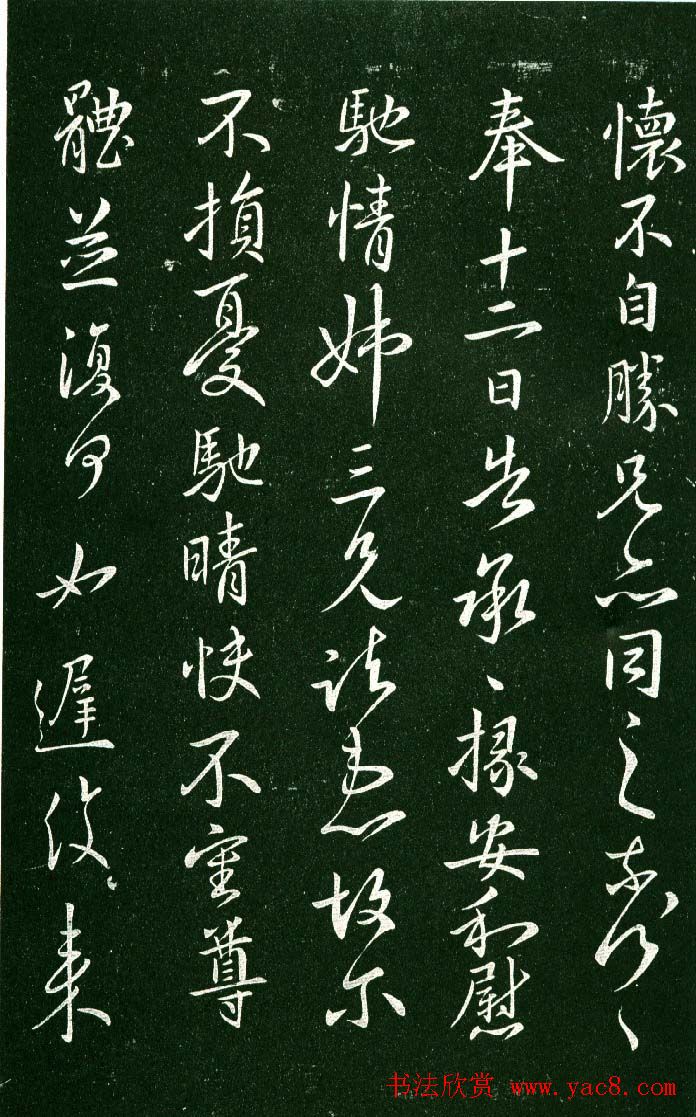 懷不自勝兄亦同之奈何〻
奉十二日告承〻掾安和慰
馳情姊三兄諸患故尔
不損憂馳晴快不審尊
體並復何如遲〻来
书法欣赏 www.yac8.com